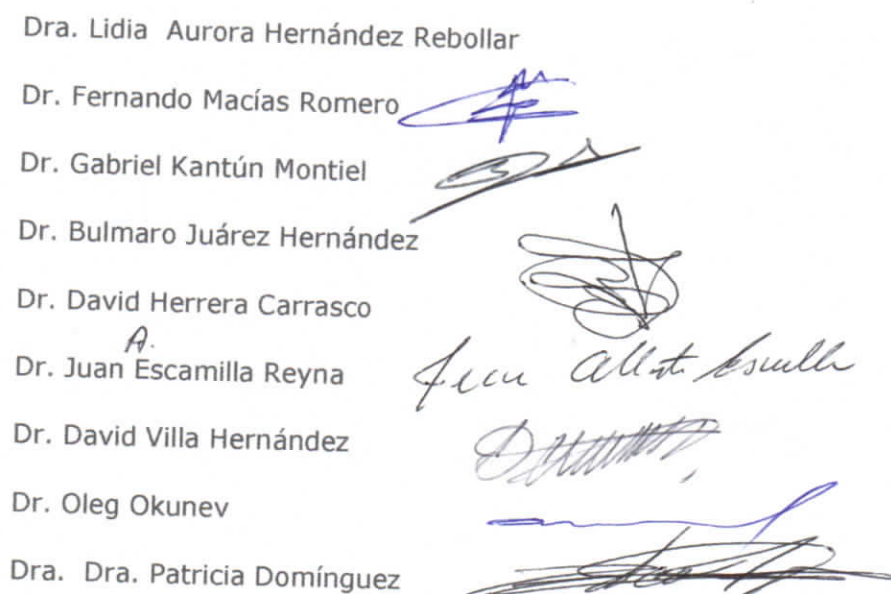 Dra. Lidia Aurora Hernández Rebollar
Dr. Fernando Macías Romero
Dr. Gabriel Kantún Montiel
Dr. Bulmaro Juárez Hernández
Dr. David Herrera Carrasco
A.
Dr. Juan Escamilla Reyna
Dr. David Villa Hernández
Dr. Oleg Okunev
Dra. Dra. Patricia Domínguez